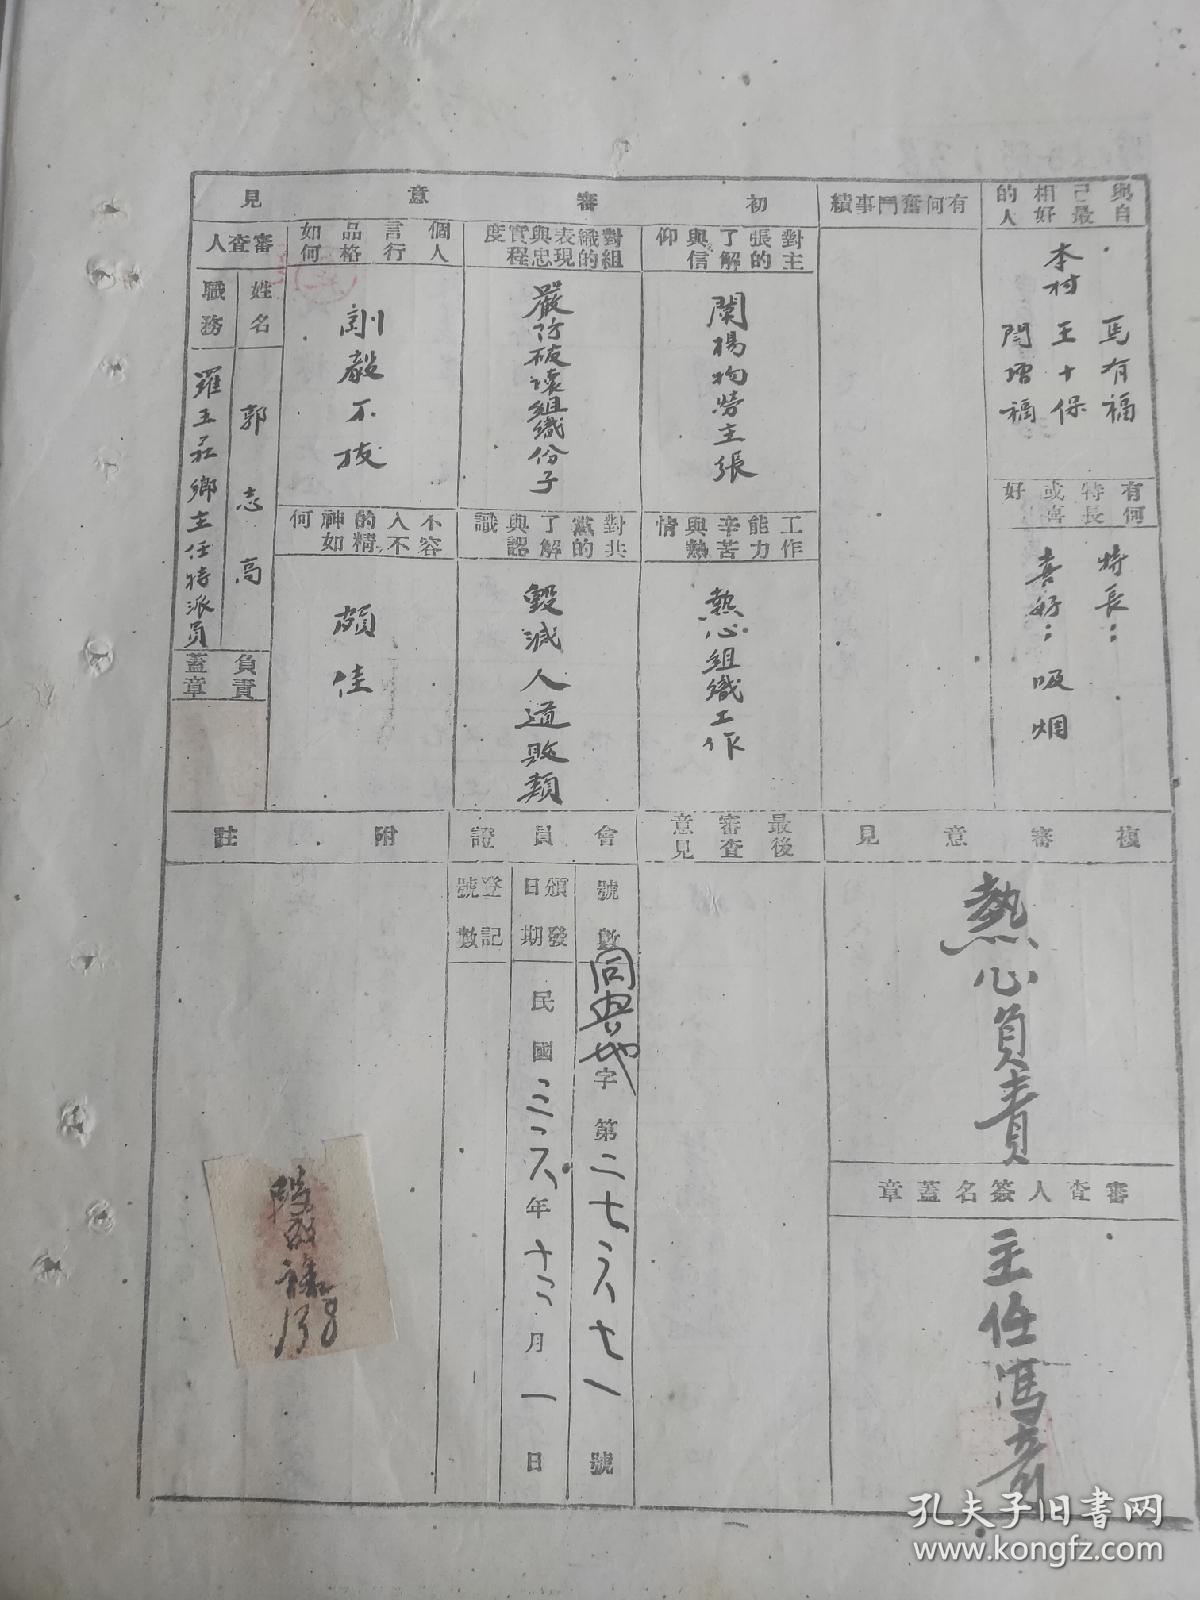 與自己最相好的人
本村
馬有福
王十保
閆增福
有何特長或喜好
特長：
喜好：吸烟
有何奮鬥事績
初審意見
對主張的了解與信仰
闡揚物勞主張
工作能力辛苦與熱情
熱心組織工作
對組織的表現與忠實程度
嚴防破壞組織份子
對共黨的了解與認識
毀滅人道敗類
個人言行品格如何
剛毅不拔
不容不入的精神如何
頗佳
審查人
姓名
郭志高
職務
羅五庄鄉主任特派員
負責蓋章
複審意見
熱心負責
審查人簽名蓋章
主任馮彥
最後審查意見
會員證
號數
同 地字第二七六七一號
頒發日期
民國三六年十二月一日
登記號數
附註
138
孔夫子旧书网
www.kongfz.com